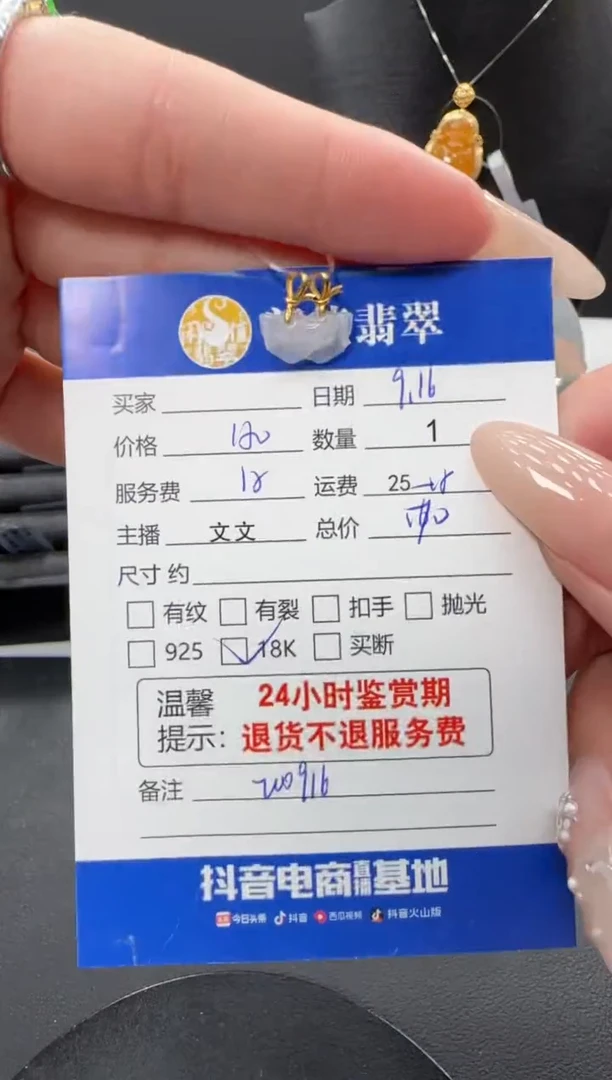 翡翠
买家 日期 9,16
价格 120 数量 1
服务费 18 运费 25
主播 文文 总价
尺寸 约
有纹 有裂 扣手 抛光
925 18K 买断
温馨 24小时鉴赏期
提示: 退货不退服务费
备注
抖音电商直播基地
今日头条 抖音 西瓜视频 抖音火山版